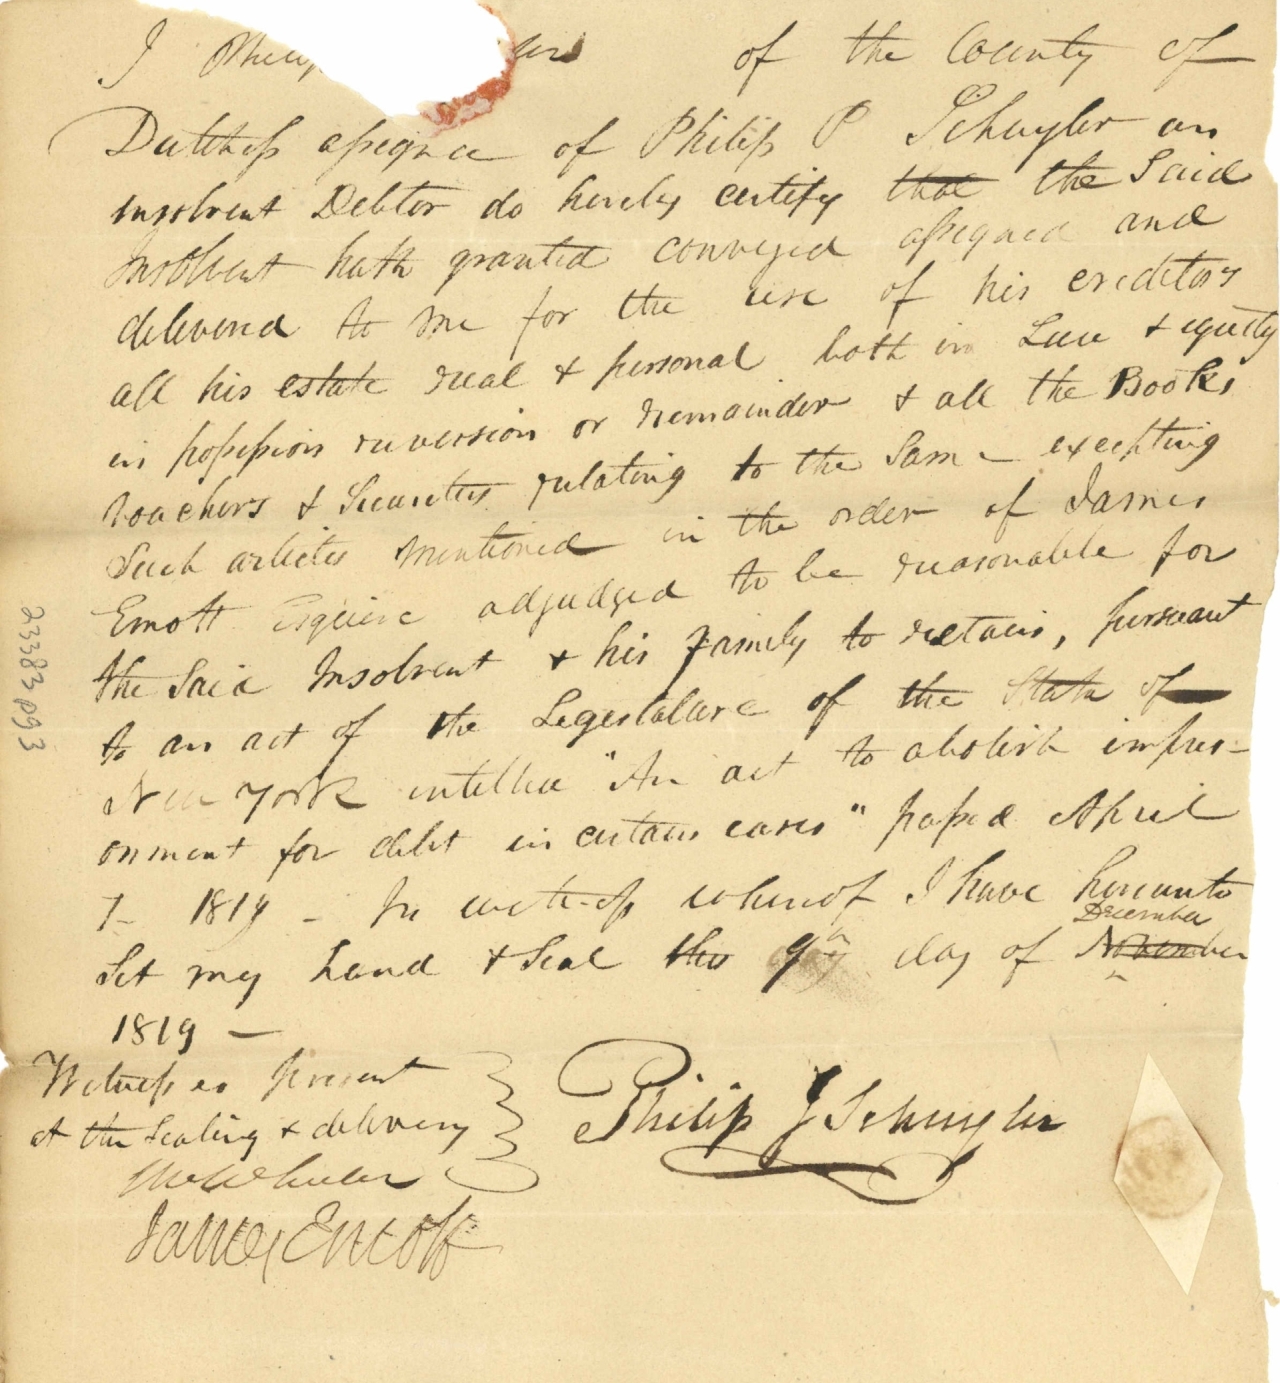 I Philip of the County of
Dutchess assignee of Philip P Schuyler an
insolvent Debtor do hereby certify that the Said
Insolvent hath granted conveyed assigned and
delivered to me for the use of his creditors
all his estate real & personal both in Law & equity
in possession reversion or remainder & all the Books
Vouchers & Securities relating to the Same excepting
Such articles mentioned in the order of James
Emott Esquire adjudged to be reasonable for
the Said Insolvent & his family to retain, pursuant
to an act of the Legislature of the State of
New York entitled "An act to abolish impris-
onment for debt in certain cases" passed April
7- 1819 - In witness whereof I have hereunto
December
Set my hand & Seal this 9th day of November
1819 —
Witnesses present
at the Sealing & delivery
Philip J Schuyler
James Emott
23383 pg3